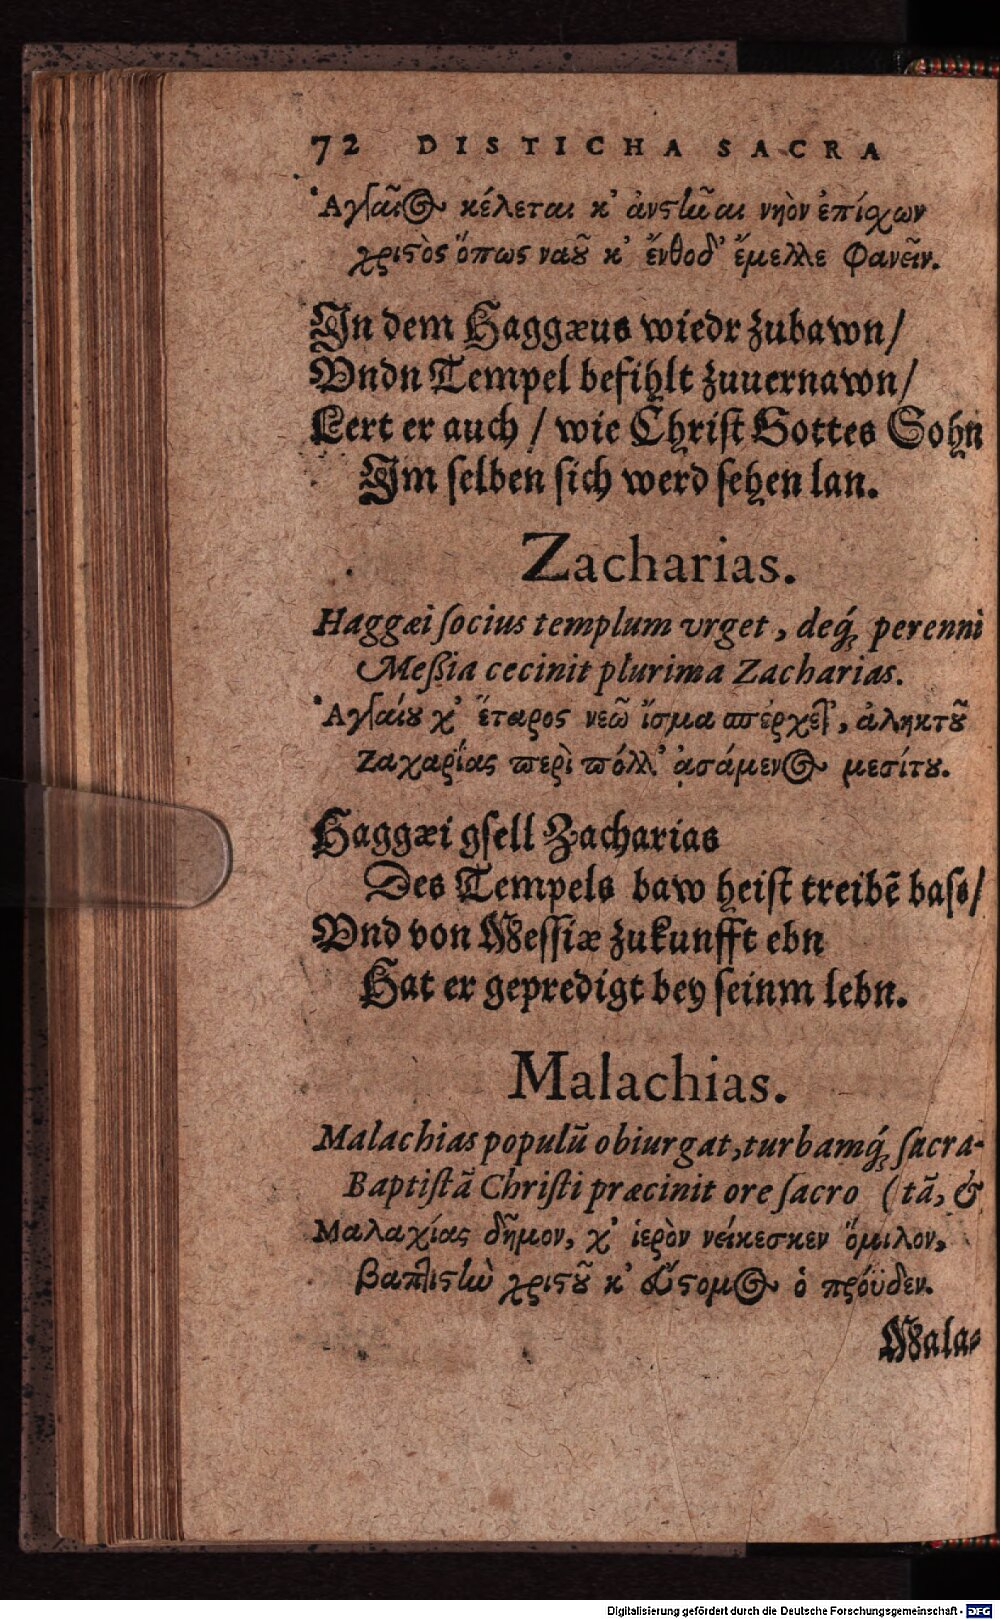 72 DISTICHA SACRA
Ἀγγαῖος κέλεται κ' ἀνστῆσαι νηὸν ἐπίσχων
χριστὸς ὅπως ναοῦ κ' ἔνθοδ' ἔμελλε φανεῖν.
In dem Haggæus wiedr zubawn/
Vndn Tempel befihlt zuuernawn/
Lert er auch / wie Christ Gottes Sohn
Im selben sich werd sehen lan.
Zacharias.
Haggæi socius templum vrget, deq́; perenni
Meßia cecinit plurima Zacharias.
Ἀγγαίου χ' ἕταρος νεῶ ἵσμα περχεῖ, ἀληκτοῦ
Ζαχαρίας περὶ πόλλ' ᾀσάμενος μεσίτου.
Haggæi gsell Zacharias
Des Tempels baw heist treibē bass/
Vnd von Messiæ zukunfft ebn
Hat er gepredigt bey seinm lebn.
Malachias.
Malachias populū obiurgat, turbamq́; sacra-
Baptistā Christi præcinit ore sacro (tā, &
Μαλαχίας δῆμον, χ' ἱερὸν νείκεσκεν ὅμιλον,
βαπτιστὴν χριστοῦ κ' εὔστομος ὁ πρόϋδεν.
Mala-
Digitalisierung gefördert durch die Deutsche Forschungsgemeinschaft - DFG